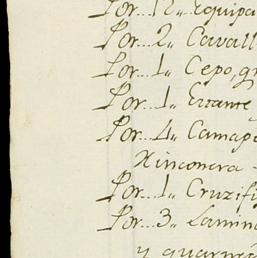 Por... 12,, Equipa
Por... 2,, Cavall
Por... 1,, Cepo, gr
Por... 1,, Estante
Por... 4,, Camape
Rinconera
Por... 1,, Cruzifi
Por... 3,, Lamina
y guarne